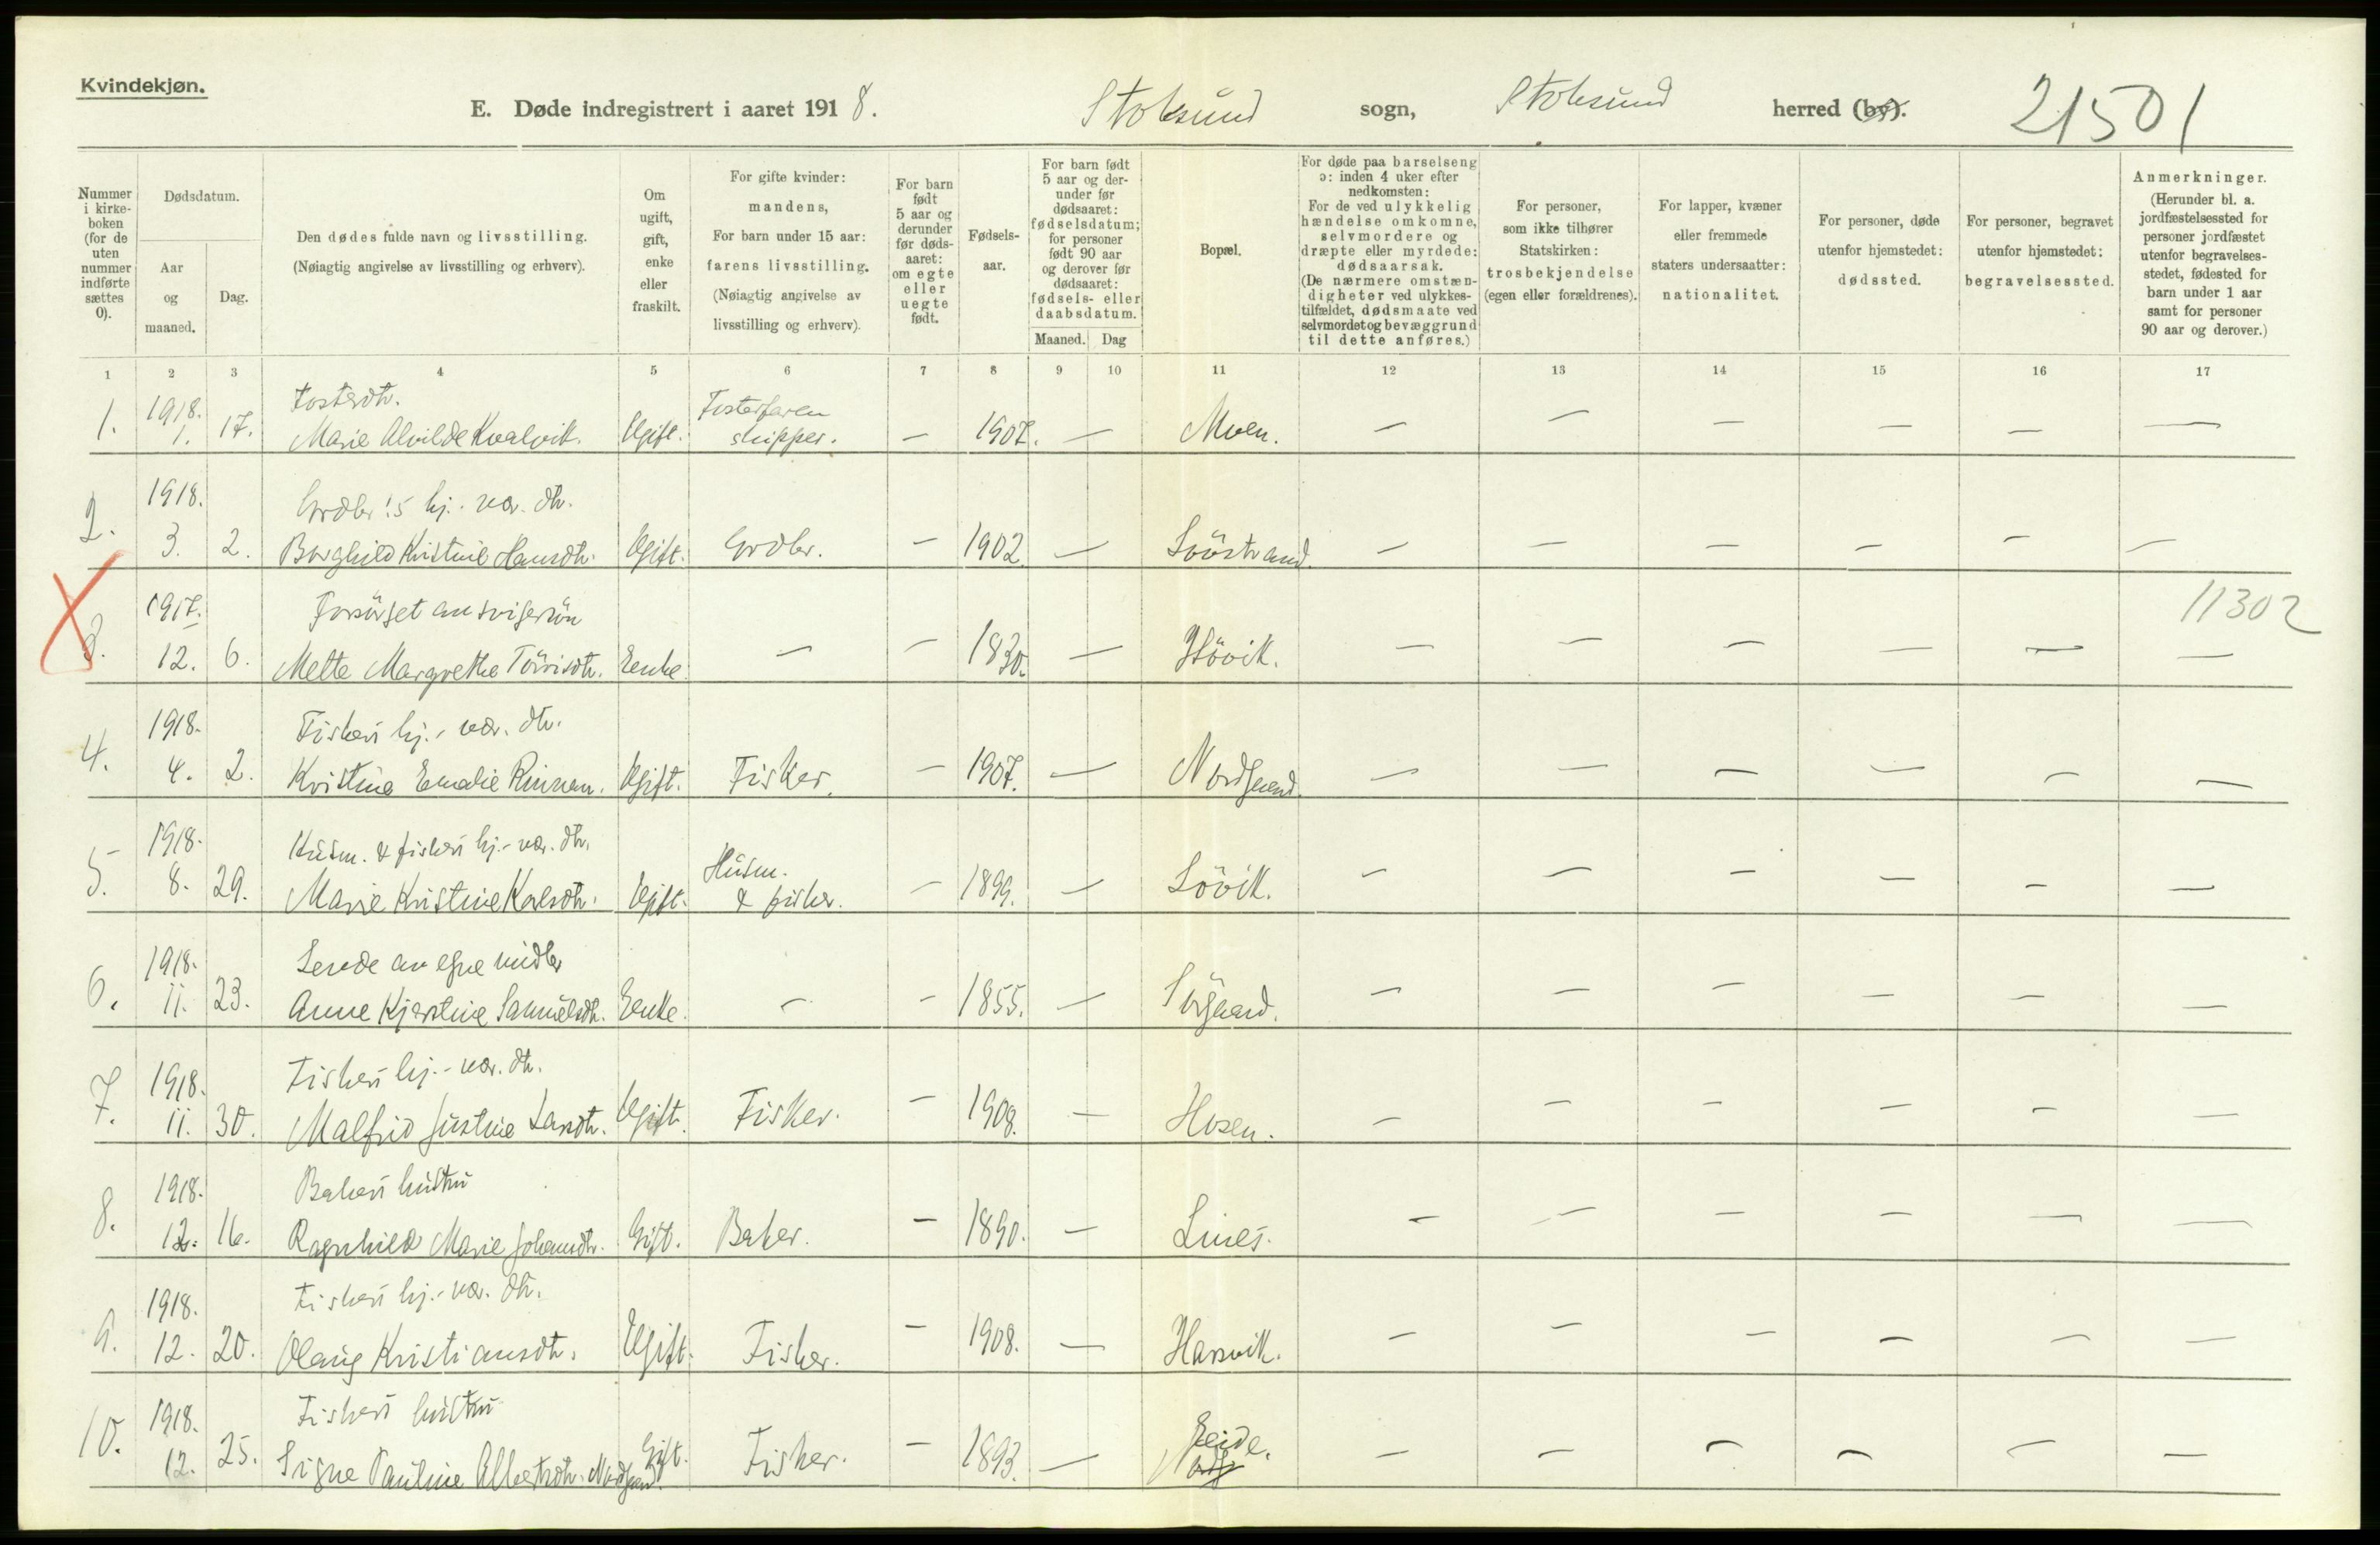 Kvindekjøn.
E. Døde indregistrert i aaret 1918. Stoksund sogn, Stoksund herred (by). 21501
Nummer i kirke-boken (for de uten nummer indførte sættes 0).
Dødsdatum.
Aar og maaned.
Dag.
Den dødes fulde navn og livsstilling.
(Nøiagtig angivelse av livsstilling og erhverv).
Om ugift, gift, enke eller fraskilt.
For gifte kvinder: mandens,
For barn under 15 aar: farens livsstilling.
(Nøiagtig angivelse av livsstilling og erhverv).
For barn født 5 aar og derunder før døds-aaret: om egte eller uegte født.
Fødsels-aar.
For barn født 5 aar og der-under før dødsaaret: fødselsdatum; for personer født 90 aar og derover før dødsaaret: fødsels- eller daabsdatum.
Maaned. Dag
Bopæl.
For døde paa barselseng ɔ: inden 4 uker efter nedkomsten:
For de ved ulykkelig hændelse omkomne, selvmordere og dræpte eller myrdede: dødsaarsak.
(De nærmere omstæn-digheter ved ulykkes-tilfældet, dødsmaate ved selvmordet og bevæggrund til dette anføres.)
For personer, som ikke tilhører Statskirken: trosbekjendelse (egen eller forældrenes).
For lapper, kvæner eller fremmede staters undersaatter: nationalitet.
For personer, døde utenfor hjemstedet: dødssted.
For personer, begravet utenfor hjemstedet: begravelsessted.
Anmerkninger.
(Herunder bl. a. jordfæstelsessted for personer jordfæstet utenfor begravelses-stedet, fødested for barn under 1 aar samt for personer 90 aar og derover.)
1 2 3 4 5 6 7 8 9 10 11 12 13 14 15 16 17
1918. Fosterdtr. Fosterfaren
1. 1. 17. Marie Alvilde Kvalvik. Ugift. skipper. — 1907. — Moen. — — — — — —
1918. Grdbr!s hj.-vær. dtr.
2. 3. 2. Borghild Kristine Hansdtr. Ugift. Grdbr. — 1902. — Sööstrand. — — — — — —
1917. Forsörget av svigersön 11302
3. 12. 6. Mette Margrethe Törrisdtr. Enke. — — 1830. — Hövik. — — — — — —
1918. Fiskers hj.-vær. dtr.
4. 4. 2. Kristine Emalie Rinnan. Ugift. Fisker. — 1907. — Nordgaard. — — — — — —
1918. Husm. & fiskers hj.-vær. dtr. Husm.
5. 8. 29. Marie Kristine Karlsdtr. Ugift. & fisker. — 1899. — Lövik. — — — — — —
1918. Levde av egne midler
6. 11. 23. Anne Kjerstine Samuelsdtr. Enke. — — 1855. — Sörgaard. — — — — — —
1918. Fiskers hj.-vær. dtr.
7. 11. 30. Malfrid Justine Larsdtr. Ugift. Fisker. — 1908. — Hosen. — — — — — —
1918. Bakers hustru
8. 12. 16. Ragnhild Marie Johansdtr. Gift. Baker. — 1890. — Lines. — — — — — —
1918. Fiskers hj.-vær. dtr.
9. 12. 20. Olaug Kristiansdtr. Ugift. Fisker. — 1908. — Harsvik. — — — — — —
1918. Fiskers hustru
10. 12. 25. Signe Pauline Albertsdtr. Nordgaard. Gift. Fisker. — 1893. — Eide. — — — — — —